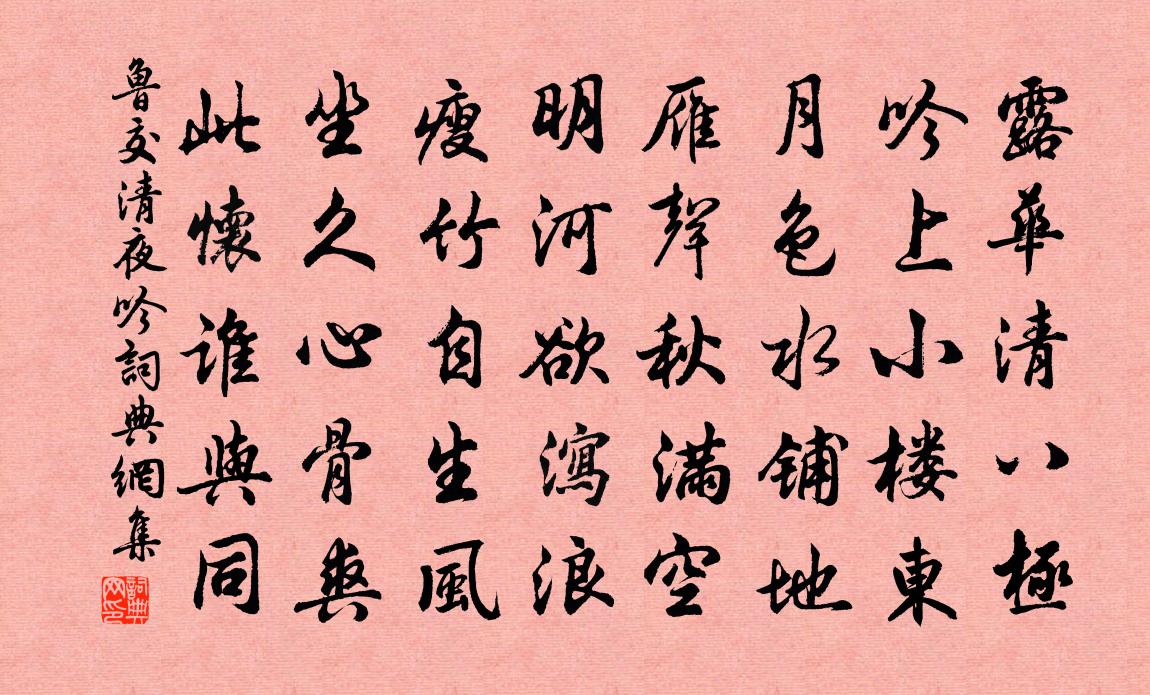 露華清八極
吟上小楼東
月色水铺地
雁聲秋滿空
明河欲瀉浪
瘦竹自生風
坐久心骨爽
此懷誰與同
魯交清夜吟詞典網集
詞典网印